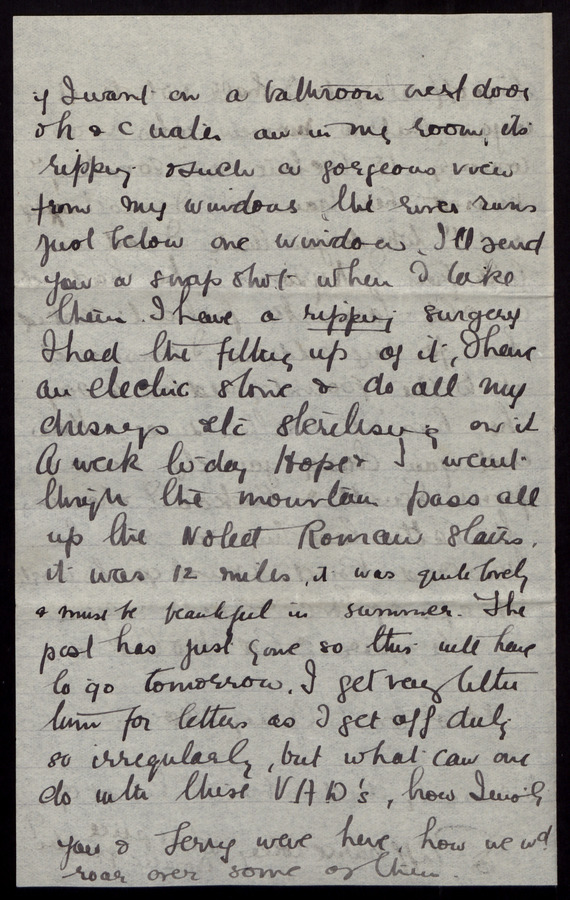 if I want on a bathroom next door
oh & c water all in my room, its
ripping & such a gorgeous view
from my windows, the river runs
just below one window. I'll send
you a snap shot when I take
them. I have a ripping surgery
I had the fitting up of it, I have
an electric stove & do all my
dressings etc sterilising on it
A week to-day Hope & I went
through the mountain pass all
up the Roman Stairs.
it was 12 miles, it was quite lovely
& must be beautiful in summer. The
post has just gone so this will have
to go tomorrow. I get very little
time for letters as I get off duty
so irregularly, but what can one
do with these VAD's, how I wish
you & Jerry were here, how we wd
roar over some of them.